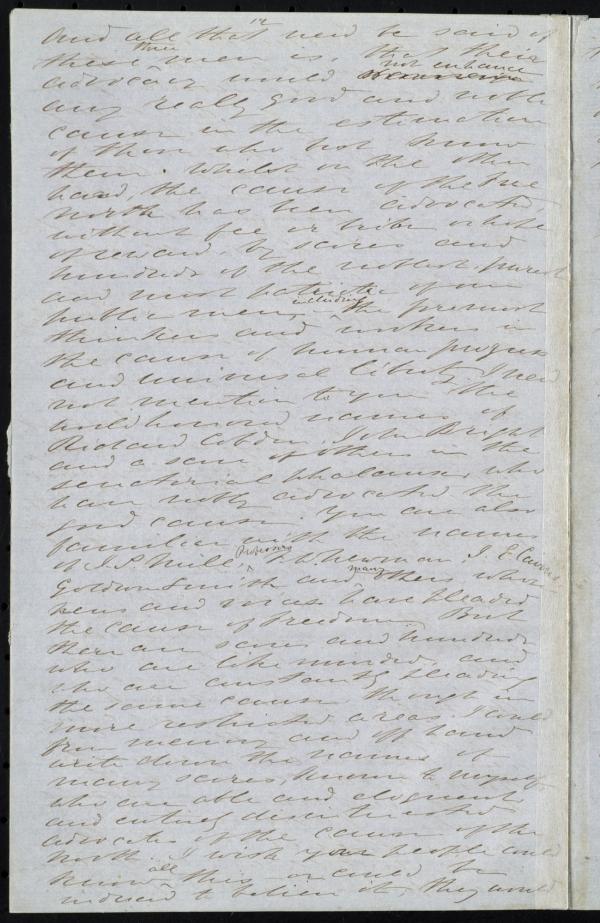 12
and all that need be said of
these three men is, that their
advocacy would not enhance
any really good and noble
cause in the estimation
of those who best know
them. Whilst on the other
hand, the cause of the true
north has been advocated
without fee or bribe or hope
of reward, by scores and
hundreds of the noblest, purest
and most patriotic of our
public men, including the foremost
thinkers and workers in
the cause of human progress
and universal liberty. I need
not mention to you the
world honored names of
Richard Cobden, John Bright
and a score of others in the
senatorial phalanx, who
have nobly advocated the
good cause. You are also
familiar with the names
of J. S. Mill, Professors F. W. Newman, J. E. Cairnes
Goldwin Smith and many others whose
pens and voices have pleaded
the cause of Freedom. But
there are scores and hundreds
who are like minded, and
who are constantly pleading
the same cause though in
more restricted areas. I could
from memory and off hand
write down the names of
many scores, known to myself,
who are able and eloquent
and entirely disinterested
advocates of the cause of the
North. I wish your people could
know all this or could be
induced to believe it, they would